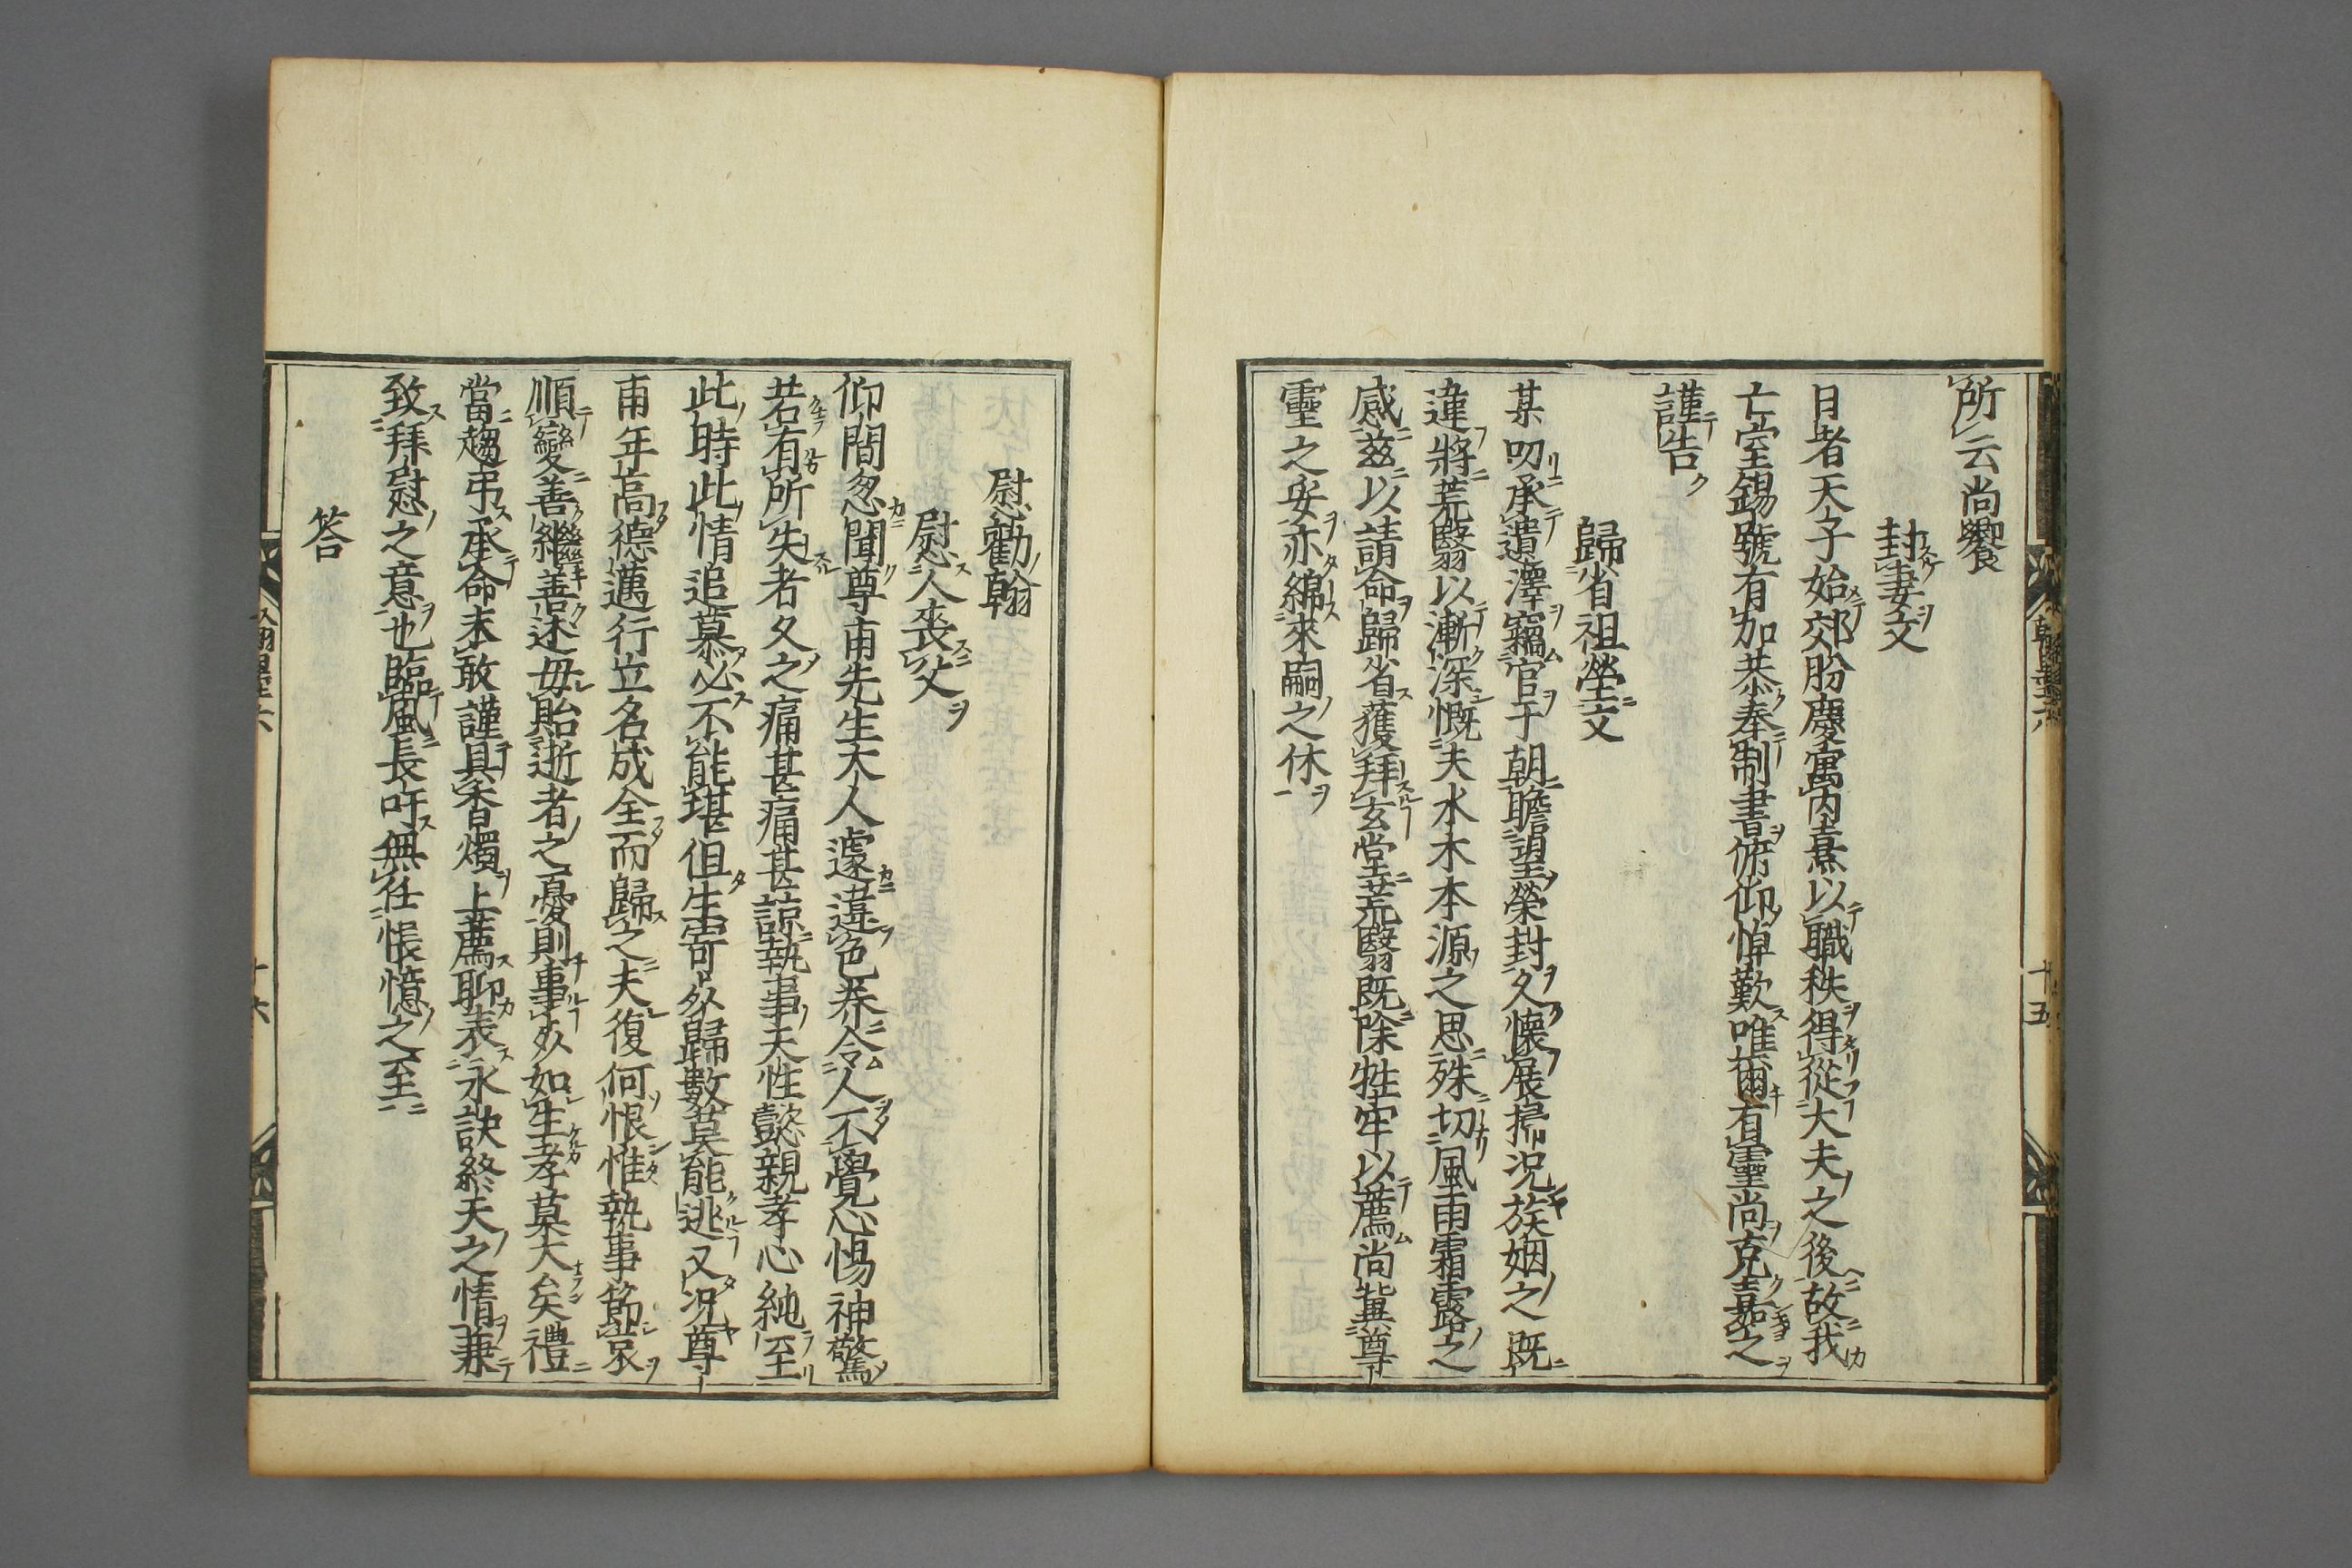 所云尚饗
封妻文
日者天子始郊肦慶寓内熹以職秩得從大夫之後故我
亡室錫號有加恭奉制書俯仰悼歎唯爾有靈尚克嘉之
謹告
歸省祖塋文
某叨承遺澤竊官于朝瞻望榮封久懐展掃况族姻之既
違將荒翳以漸深慨夫水木本源之思殊切風雨霜露之
感兹以請命歸省獲拜玄堂荒翳既除牲牢以薦尚冀尊
靈之妥亦綿來嗣之休
慰勸翰
慰人喪父
仰間忽聞尊甫先生大人遽違色養令人不覺心惕神驚
若有所失者久之痛甚痛甚諒執事天性懿親孝心純至
此時此情追慕必不能堪但生寄死歸數莫能逃又况尊
甫年高德邁行立名成全而歸之夫復何恨惟執事節哀
順變善繼善述毋貽逝者之憂則事死如生孝莫大矣禮
當趨弔承命未敢謹具香燭上薦聊表永訣終天之情兼
致拜慰之意也臨風長吁無任悵憶之至
答
翰墨六
十五
十六